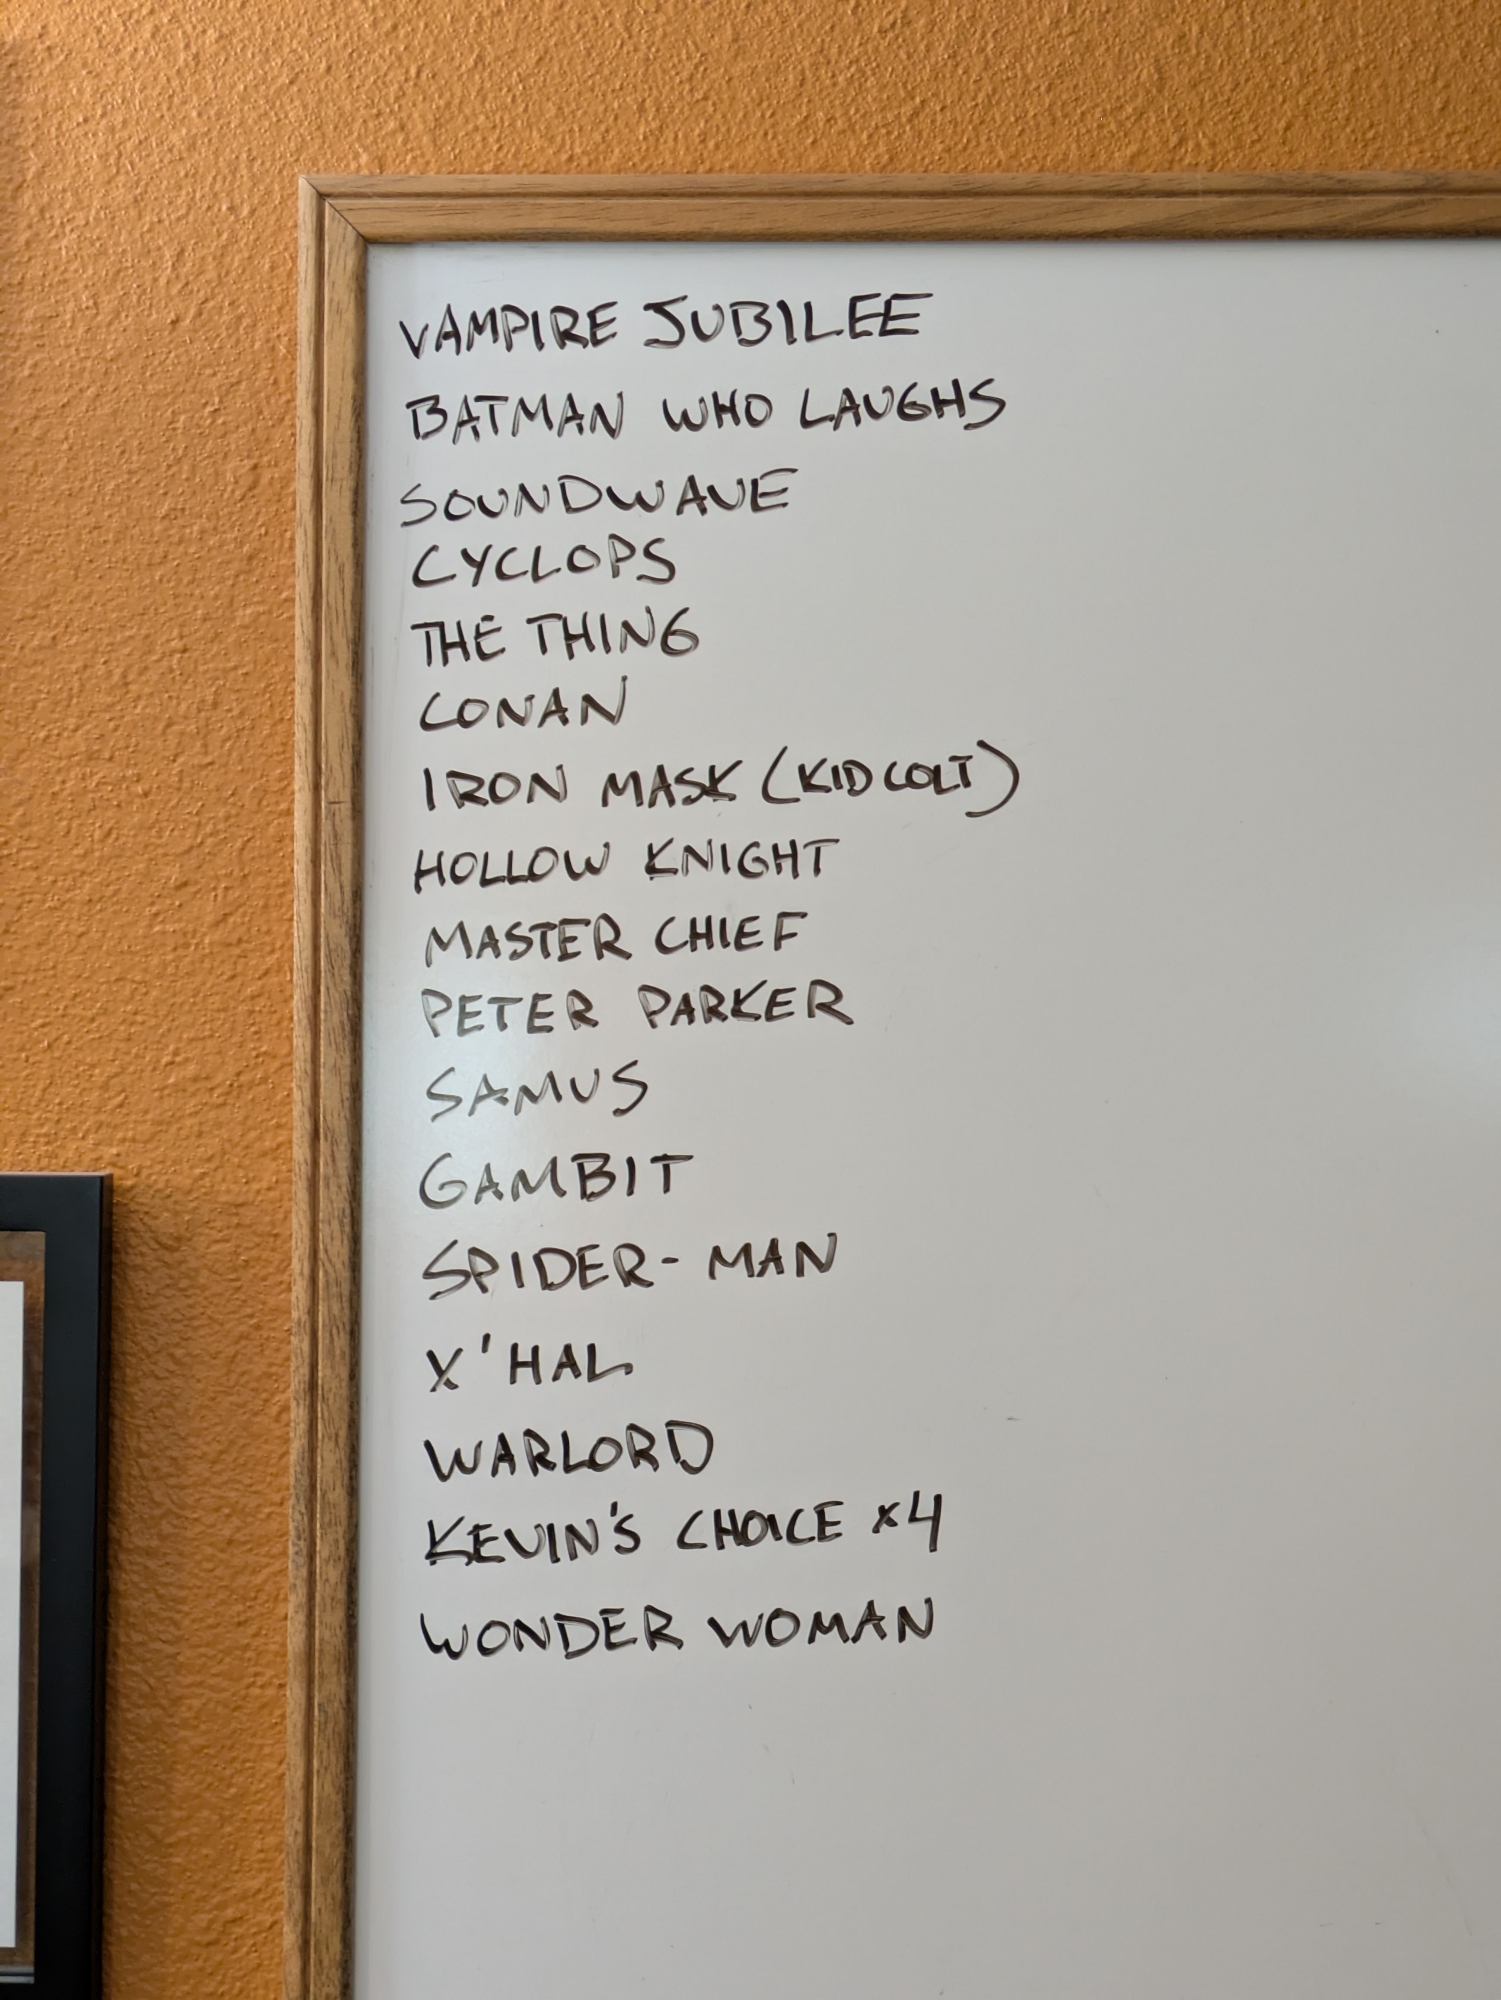 VAMPIRE JUBILEE
BATMAN WHO LAUGHS
SOUNDWAVE
CYCLOPS
THE THING
CONAN
IRON MASK (KID COLT)
HOLLOW KNIGHT
MASTER CHIEF
PETER PARKER
SAMUS
GAMBIT
SPIDER-MAN
X'HAL
WARLORD
KEVIN'S CHOICE x4
WONDER WOMAN